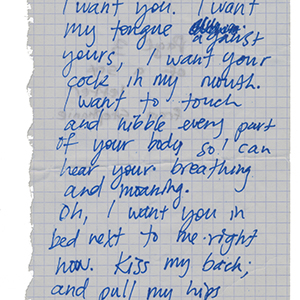 I want you. I want
my tongue against
yours, I want your
cock in my mouth.
I want to touch
and nibble every part
of your body so I can
hear your breathing
and moaning.
Oh, I want you in
bed next to me right
now. Kiss my back;
and pull my hips